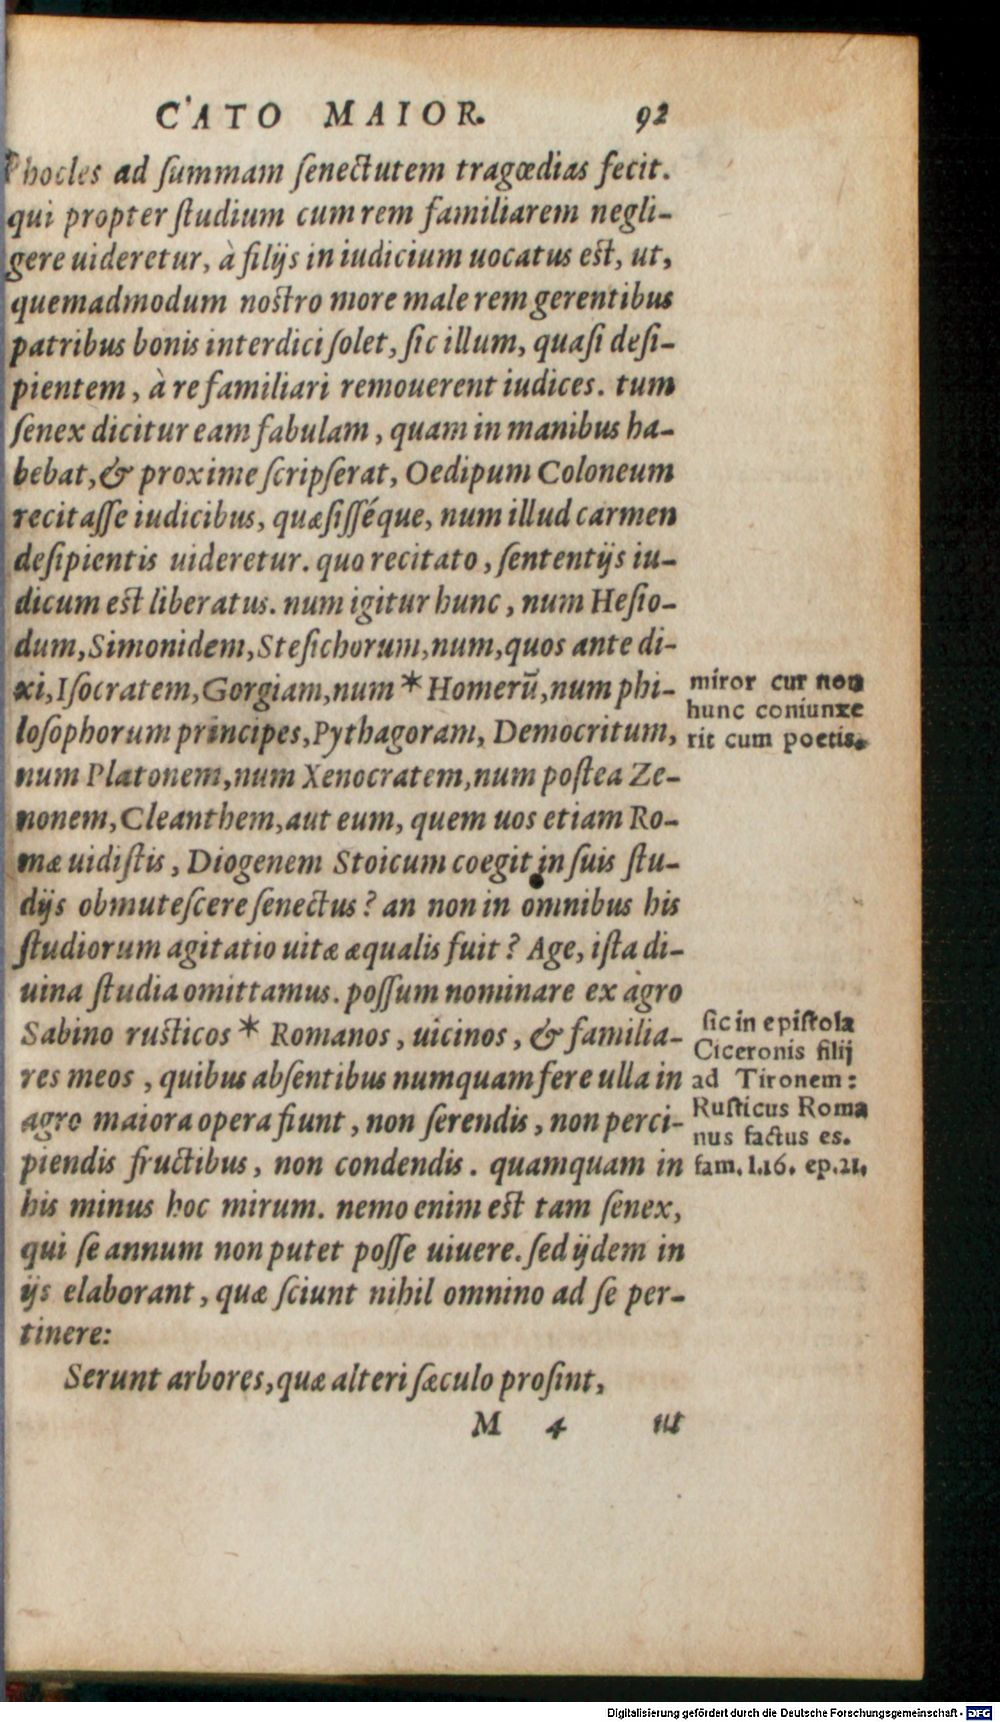 CATO MAIOR. 92
phocles ad summam senectutem tragœdias fecit.
qui propter studium cum rem familiarem negli-
gere uideretur, à filijs in iudicium uocatus est, ut,
quemadmodum nostro more male rem gerentibus
patribus bonis interdici solet, sic illum, quasi desi-
pientem, à re familiari remouerent iudices. tum
senex dicitur eam fabulam, quam in manibus ha-
bebat, & proxime scripserat, Oedipum Coloneum
recitasse iudicibus, quæsisséque, num illud carmen
desipientis uideretur. quo recitato, sententijs iu-
dicum est liberatus. num igitur hunc, num Hesio-
dum, Simonidem, Stesichorum, num, quos ante di-
xi, Isocratem, Gorgiam, num * Homerū, num phi-
losophorum principes, Pythagoram, Democritum,
num Platonem, num Xenocratem, num postea Ze-
nonem, Cleanthem, aut eum, quem uos etiam Ro-
mæ uidistis, Diogenem Stoicum coegit in suis stu-
dijs obmutescere senectus? an non in omnibus his
studiorum agitatio uitæ æqualis fuit? Age, ista di-
uina studia omittamus. possum nominare ex agro
Sabino rusticos * Romanos, uicinos, & familia-
res meos, quibus absentibus numquam fere ulla in
agro maiora opera fiunt, non serendis, non perci-
piendis fructibus, non condendis. quamquam in
his minus hoc mirum. nemo enim est tam senex,
qui se annum non putet posse uiuere. sed ijdem in
ijs elaborant, quæ sciunt nihil omnino ad se per-
tinere:
Serunt arbores, quæ alteri sæculo prosint,
M 4 ut
miror cur non
hunc coniunxe
rit cum poetis.
sic in epistola
Ciceronis filij
ad Tironem:
Rusticus Roma
nus factus es.
fam. l.16. ep.21.
Digitalisierung gefördert durch die Deutsche Forschungsgemeinschaft - DFG